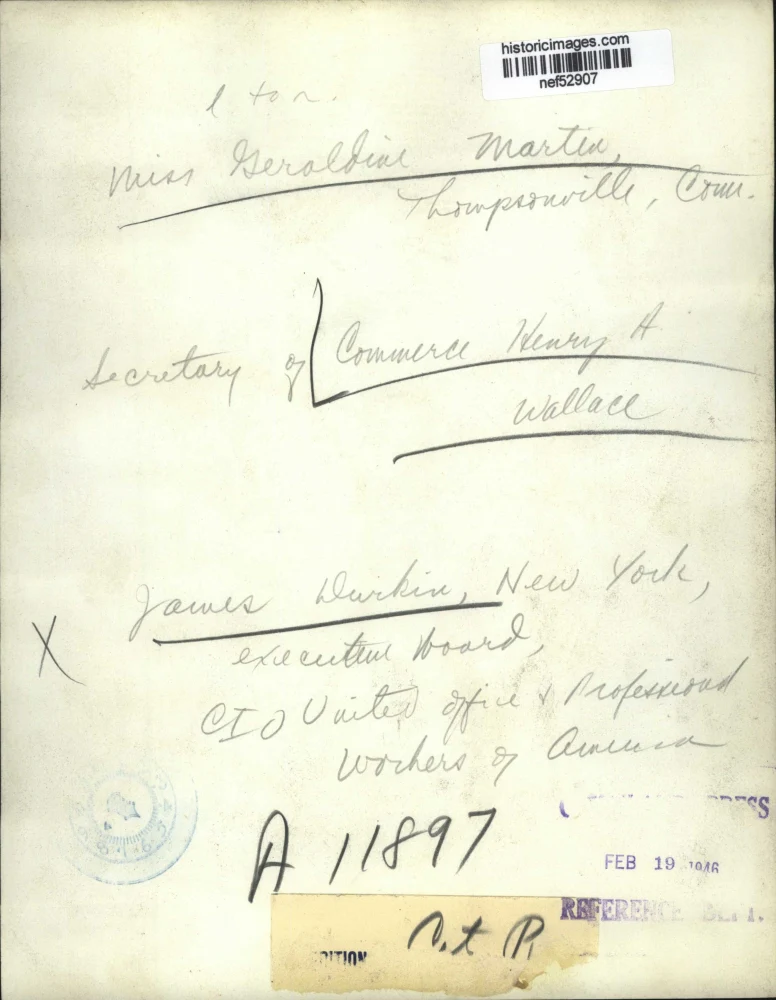 historicimages.com
nef52907
l to r.
Miss Geraldine Martin,
Thompsonville, Conn.
Secretary of Commerce Henry A
Wallace
James Durkin, New York,
X
executive board,
CIO United office & Professional
Workers of America
A 11897
PRESS
FEB 19 1946
REFERENCE DEPT.